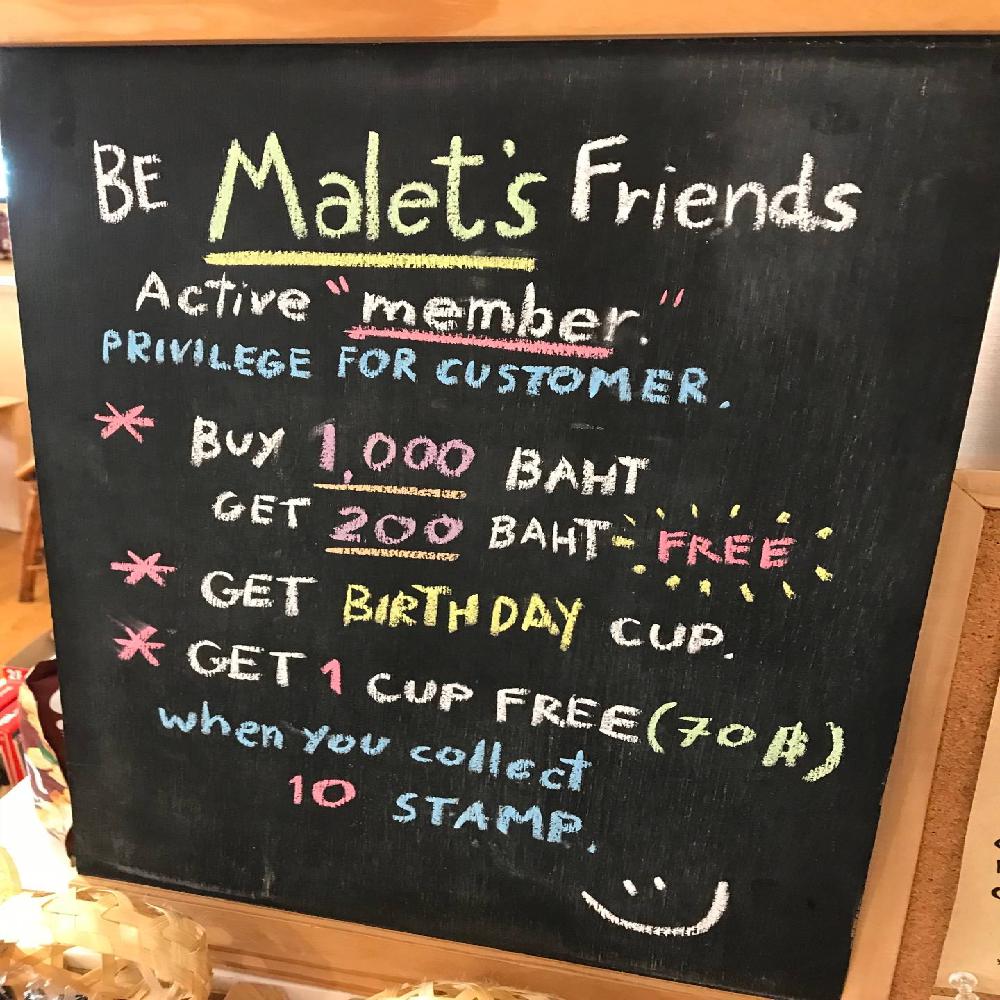 BE Malet's Friends
Active "member."
PRIVILEGE FOR CUSTOMER.
* BUY 1,000 BAHT
GET 200 BAHT FREE
* GET BIRTHDAY CUP.
* GET 1 CUP FREE (70 ฿)
when you collect
10 STAMP.